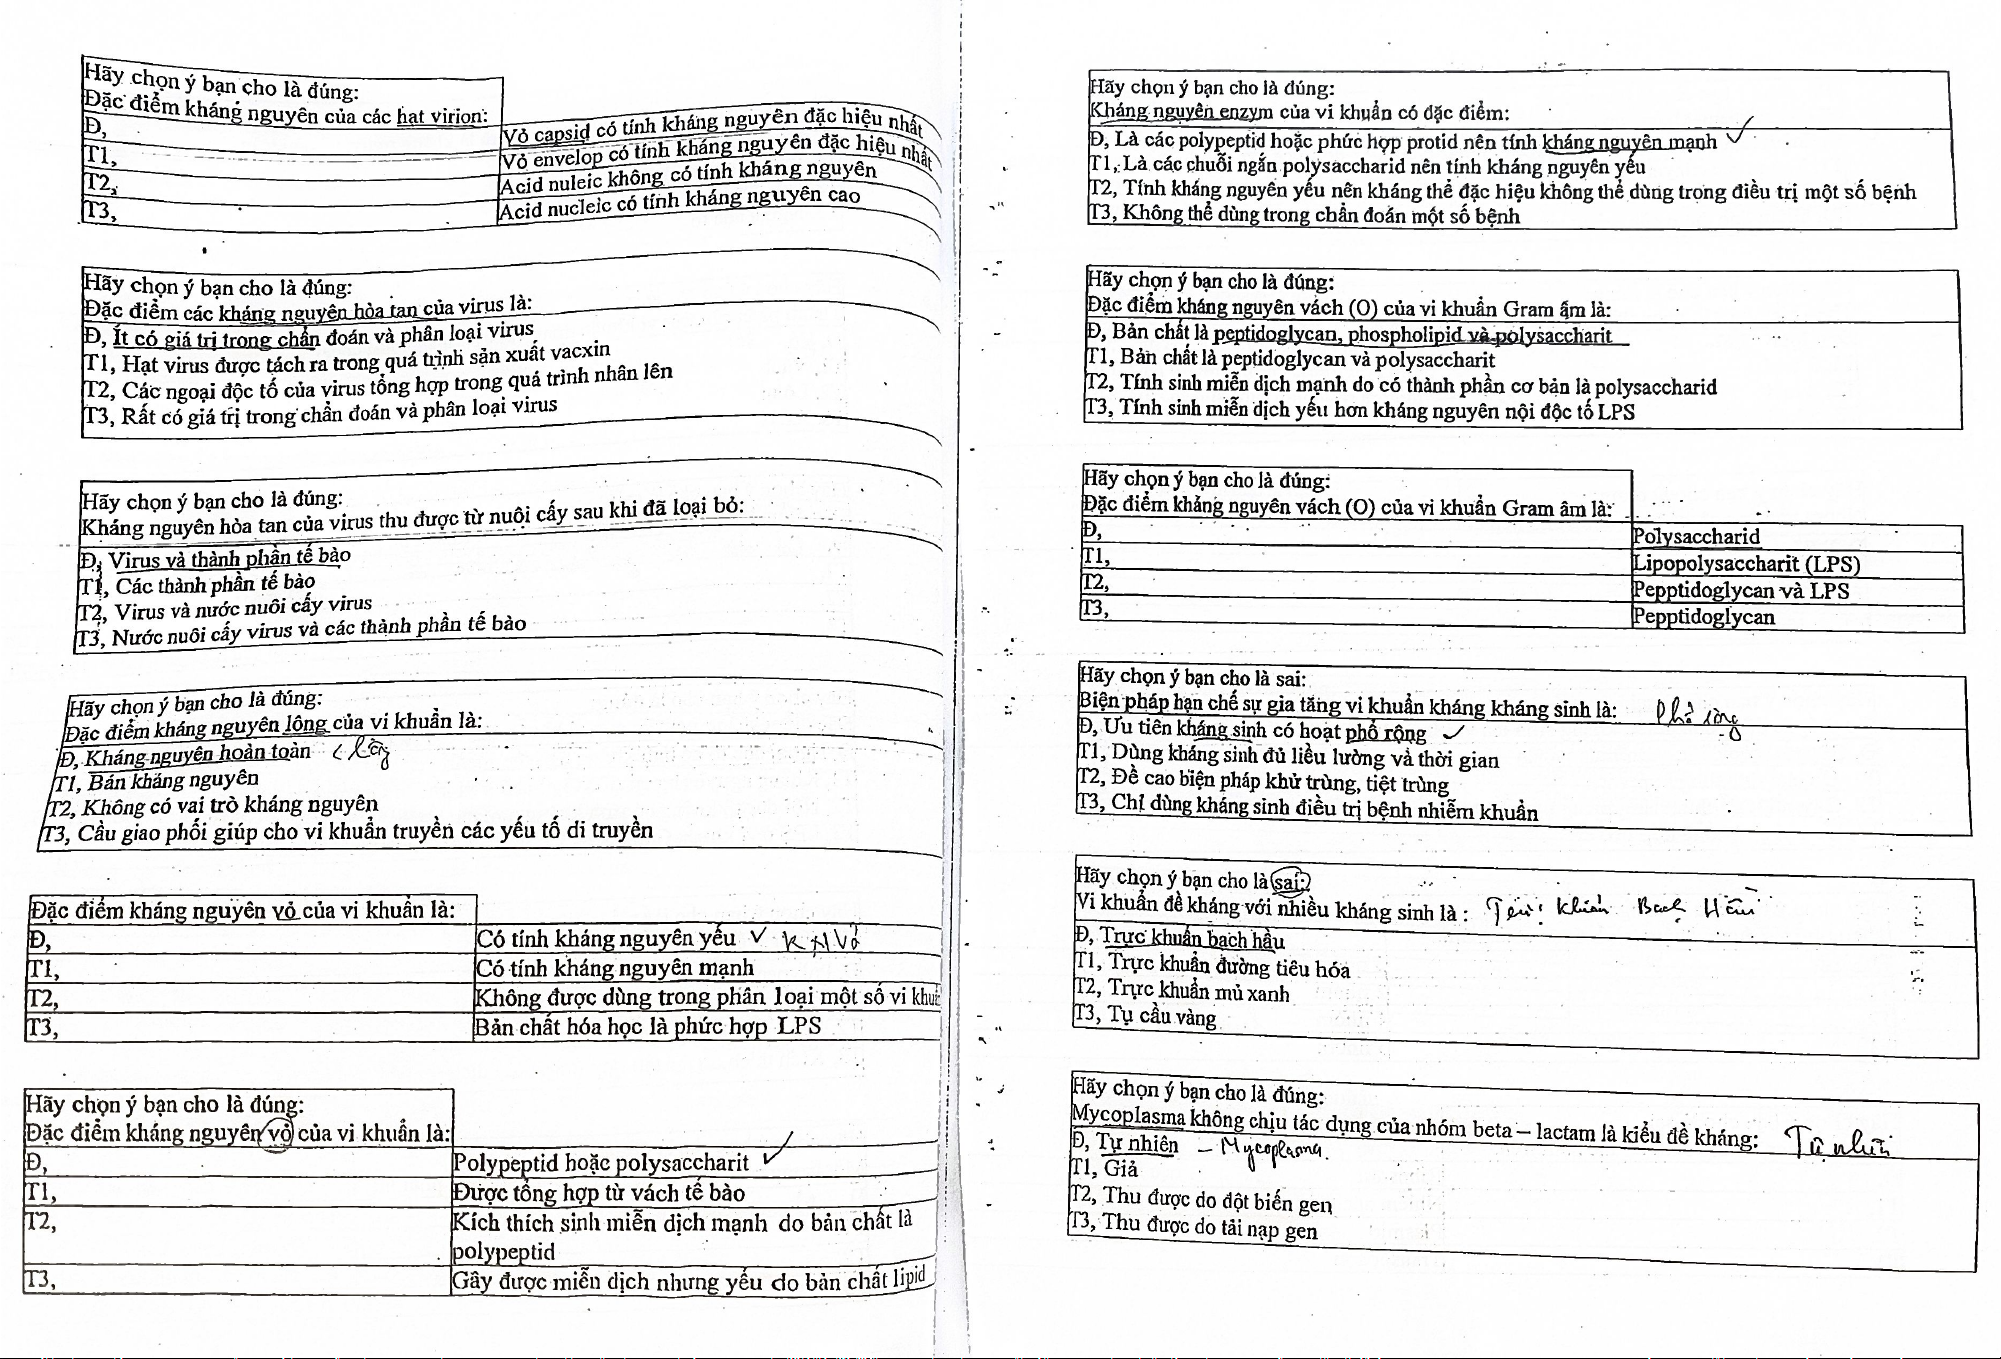 Hãy chọn ý bạn cho là đúng:
Đặc điểm kháng nguyên của các hạt virion:
Đ, Vỏ capsid có tính kháng nguyên đặc hiệu nhất
T1, Vỏ envelop có tính kháng nguyên đặc hiệu nhất
T2, Acid nuleic không có tính kháng nguyên
T3, Acid nucleic có tính kháng nguyên cao
Hãy chọn ý bạn cho là đúng:
Đặc điểm các kháng nguyên hòa tan của virus là:
Đ, Ít có giá trị trong chẩn đoán và phân loại virus
T1, Hạt virus được tách ra trong quá trình sản xuất vacxin
T2, Các ngoại độc tố của virus tổng hợp trong quá trình nhân lên
T3, Rất có giá trị trong chẩn đoán và phân loại virus
Hãy chọn ý bạn cho là đúng:
Kháng nguyên hòa tan của virus thu được từ nuôi cấy sau khi đã loại bỏ:
Đ, Virus và thành phần tế bào
T1, Các thành phần tế bào
T2, Virus và nước nuôi cấy virus
T3, Nước nuôi cấy virus và các thành phần tế bào
Hãy chọn ý bạn cho là đúng:
Đặc điểm kháng nguyên lông của vi khuẩn là:
Đ, Kháng nguyên hoàn toàn
T1, Bán kháng nguyên
T2, Không có vai trò kháng nguyên
T3, Cầu giao phối giúp cho vi khuẩn truyền các yếu tố di truyền
Đặc điểm kháng nguyên vỏ của vi khuẩn là:
Đ, Có tính kháng nguyên yếu ✓ KN Vỏ
T1, Có tính kháng nguyên mạnh
T2, Không được dùng trong phân loại một số vi khuẩ
T3, Bản chất hóa học là phức hợp LPS
Hãy chọn ý bạn cho là đúng:
Đặc điểm kháng nguyên vỏ của vi khuẩn là:
Đ, Polypeptid hoặc polysaccharit ✓
T1, Được tổng hợp từ vách tế bào
T2, Kích thích sinh miễn dịch mạnh do bản chất là
polypeptid
T3, Gây được miễn dịch nhưng yếu do bản chất lipid
Hãy chọn ý bạn cho là đúng:
Kháng nguyên enzym của vi khuẩn có đặc điểm:
Đ, Là các polypeptid hoặc phức hợp protid nên tính kháng nguyên mạnh ✓
T1, Là các chuỗi ngắn polysaccharid nên tính kháng nguyên yếu
T2, Tính kháng nguyên yếu nên kháng thể đặc hiệu không thể dùng trong điều trị một số bệnh
T3, Không thể dùng trong chẩn đoán một số bệnh
Hãy chọn ý bạn cho là đúng:
Đặc điểm kháng nguyên vách (O) của vi khuẩn Gram âm là:
Đ, Bản chất là peptidoglycan, phospholipid và polysaccharit
T1, Bản chất là peptidoglycan và polysaccharit
T2, Tính sinh miễn dịch mạnh do có thành phần cơ bản là polysaccharid
T3, Tính sinh miễn dịch yếu hơn kháng nguyên nội độc tố LPS
Hãy chọn ý bạn cho là đúng:
Đặc điểm kháng nguyên vách (O) của vi khuẩn Gram âm là:
Đ, Polysaccharid
T1, Lipopolysaccharit (LPS)
T2, Pepptidoglycan và LPS
T3, Pepptidoglycan
Hãy chọn ý bạn cho là sai:
Biện pháp hạn chế sự gia tăng vi khuẩn kháng kháng sinh là: Phổ rộng
Đ, Ưu tiên kháng sinh có hoạt phổ rộng ✓
T1, Dùng kháng sinh đủ liều lượng và thời gian
T2, Đề cao biện pháp khử trùng, tiệt trùng
T3, Chỉ dùng kháng sinh điều trị bệnh nhiễm khuẩn
Hãy chọn ý bạn cho là sai:
Vi khuẩn đề kháng với nhiều kháng sinh là : khuẩn Bạch Hầu
Đ, Trực khuẩn bạch hầu
T1, Trực khuẩn đường tiêu hóa
T2, Trực khuẩn mủ xanh
T3, Tụ cầu vàng
Hãy chọn ý bạn cho là đúng:
Mycoplasma không chịu tác dụng của nhóm beta – lactam là kiểu đề kháng: Tự nhiên
Đ, Tự nhiên – Mycoplasma.
T1, Giả
T2, Thu được do đột biến gen
T3, Thu được do tải nạp gen